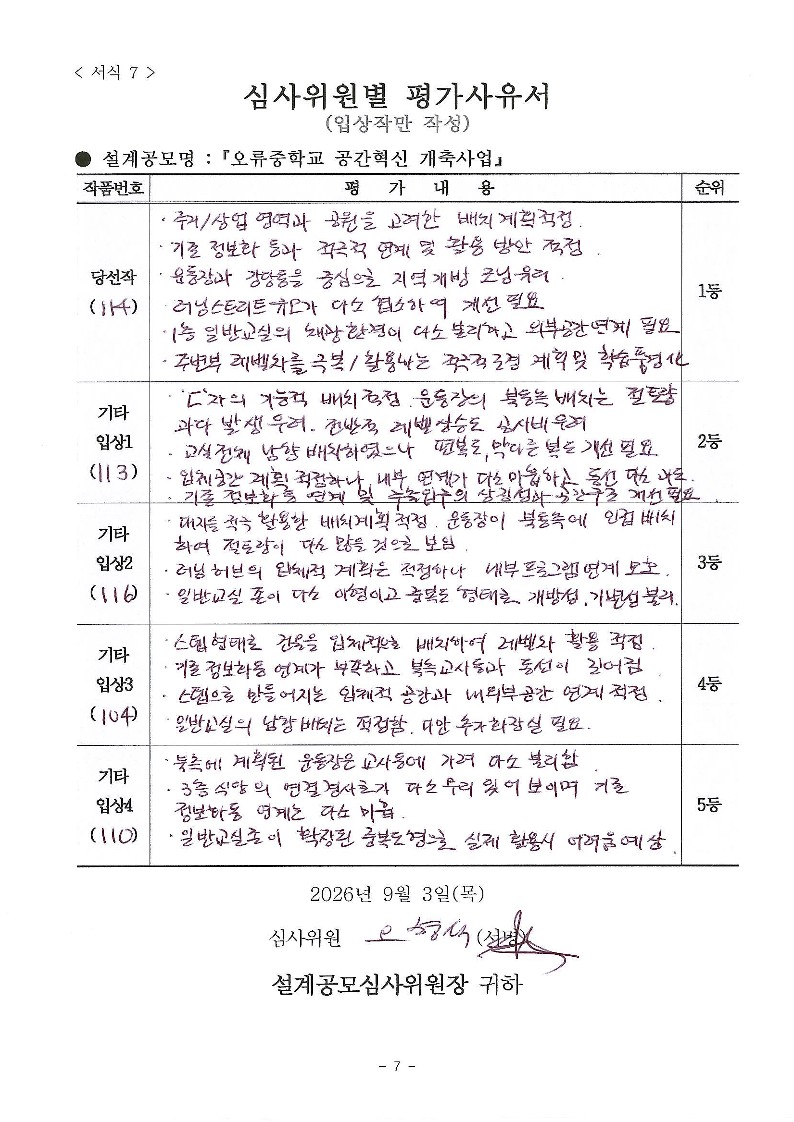 < 서식 7 >
심사위원별 평가사유서
(입상작만 작성)
● 설계공모명 : 『오류중학교 공간혁신 개축사업』
작품번호 평 가 내 용 순위
당선작
(114)
· 주거/상업 영역과 공원을 고려한 배치계획 적정.
· 기존 정보화동과 적극적 연계 및 활용 방안 적정.
· 운동장과 강당동을 중심으로 지역개방 조닝 유리.
· 러닝스트리트 유효가 다소 협소하여 개선 필요
· 1층 일반교실의 채광환경이 다소 불리하고 외부공간연계 필요
· 주변부 레벨차를 극복/활용하는 적극적 조경 계획 및 학습풍경
1등
기타
입상1
(113)
· 'ㄷ'자의 기능적 배치 적정. 운동장의 북동측 배치는 절토량
과다 발생 우려. 전반적 레벨 상승도 공사비 우려
· 교실전체 남향 배치하였으나 편복도, 막다른 복도 개선 필요
· 입체공간 계획 적정하나, 내부 연계가 다소 미흡하고 동선 다소 과도.
· 기존 정보화동 연계 및 공간구조 개선 필요
2등
기타
입상2
(116)
· 대지를 적극 활용한 배치계획 적정. 운동장이 북동측에 인접 배치
하여 절토량이 다소 많을 것으로 보임.
· 러닝 허브의 입체적 계획은 적정하나 내부프로그램연계 모호.
· 일반교실 존이 다소 이형이고 중복도 형태로 개방성, 가변성 불리.
3등
기타
입상3
(104)
· 스텝형태로 건물을 입체적으로 배치하여 레벨차 활용 적정.
· 기존 정보화동 연계가 부족하고 북측교사동과 동선이 길어짐
· 스텝으로 만들어지는 입체적 공간과 내외부공간 연계 적정.
· 일반교실의 남향 배치는 적정함. 다만 추가화장실 필요.
4등
기타
입상4
(110)
· 북측에 계획된 운동장은 교사동에 가려 다소 불리함.
· 3층 식당의 연결경사로가 다소 무리 있어 보이며 기존
정보화동 연계는 다소 미흡.
· 일반교실존이 확장된 중복도형으로 실제 활용시 어려움 예상.
5등
2026년 9월 3일(목)
심사위원 오형석 (서명)
설계공모심사위원장 귀하
- 7 -